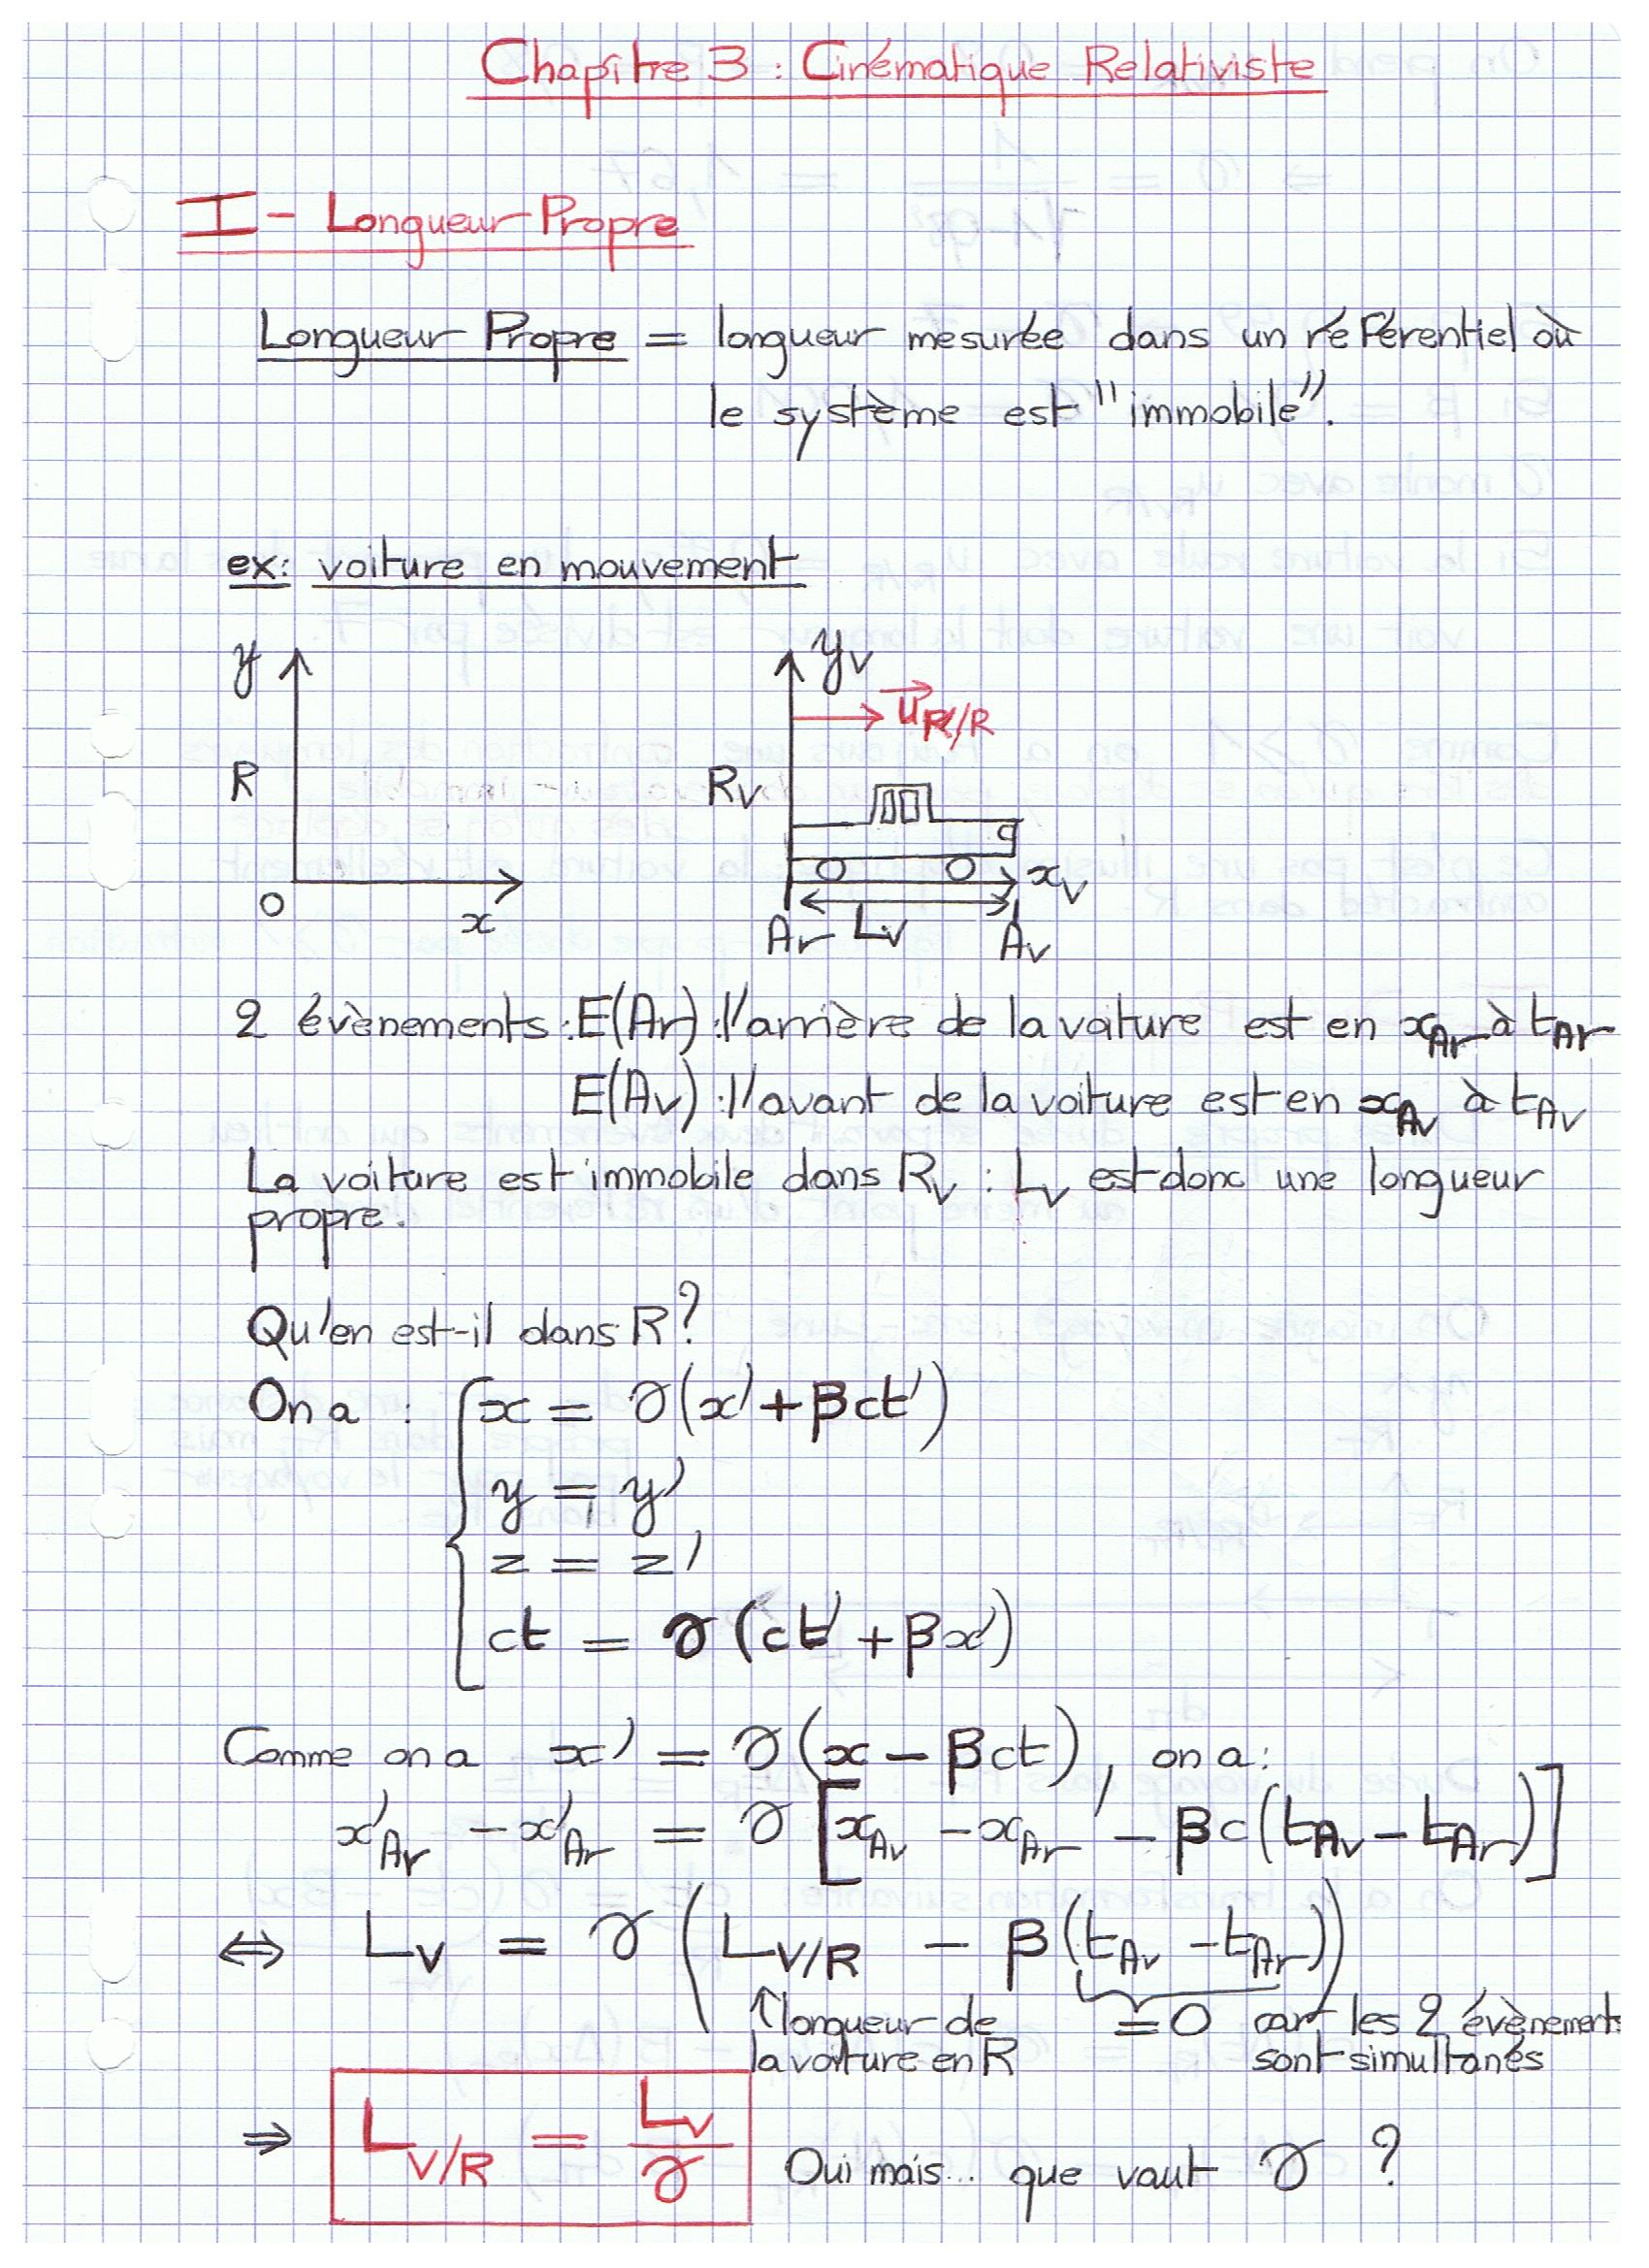 Chapître 3 : Cinématique Relativiste
I - Longueur Propre
Longueur Propre = longueur mesurée dans un référentiel où
le système est "immobile".
ex: voiture en mouvement
y
yv
u R'/R
R
Rv
O
x
xv
Ar
Lv
Av
2 évènements : E(Ar) : l'arrière de la voiture est en xAr à tAr
E(Av) : l'avant de la voiture est en xAv à tAv
La voiture est immobile dans Rv : Lv est donc une longueur
propre.
Qu'en est-il dans R ?
On a : x = γ(x' + βct')
y = y'
z = z'
ct = γ(ct' + βx')
Comme on a x' = γ(x - βct), on a :
x'Ar - x'Ar = γ [xAv - xAr - βc(tAv - tAr)]
⇔ Lv = γ (LV/R - β(tAv - tAr))
↑longueur de
la voiture en R
= 0 car les 2 évènements
sont simultanés
⇒ LV/R = Lv/γ Oui mais... que vaut γ ?